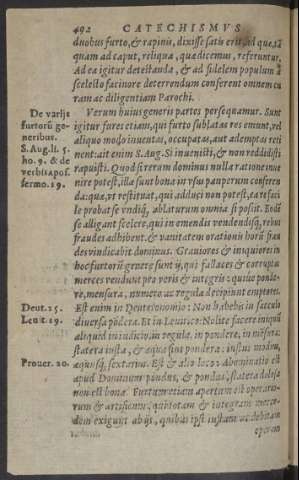 492 CATECHISMVS
duobus furto, & rapinis, dixisse satis erit, ad quæ, tã
quam ad caput, reliqua, quæ dicemus, referuntur.
Ad ea igitur detestanda, & ad fidelem populum à
scelesto facinore deterrendum conferent omnem cu
ram ac diligentiam Parochi.
De varijs
furtorũ ge-
neribus.
S. Aug. li. 5.
ho. 9. & de
verbis apos.
sermo. 19.
Verum huius generis partes persequamur. Sunt
igitur fures etiam, qui furto sublatas res emunt, vel
aliquo modo inuentas, occupatas, aut ademptas reti
nent: ait enim S. Aug. Si inuenisti, & non reddidisti
rapuisti. Quod si rerum dominus nulla ratione inue
nire potest, illa sunt bona in vsus pauperum conferen
da: quæ, vt restituat, qui adduci non potest, ea re faci
le probat se vndiq, ablaturum omnia si possit. Eodẽ
se alligant scelere, qui in emendis vendendisq, rebus
fraudes adhibent, & vanitatem orationis horũ frau
des vindicabit dominus. Grauiores & iniquiores in
hoc furtorũ genere sunt ij, qui fallaces & corruptas
merces vendunt pro veris & integris: quiue ponde-
re, mensura, numero, ac regula decipiunt emptores.
Deut. 25.
Leuit. 19.
Est enim in Deuteronomio: Non habebis in sacculo
diuersa põdera. Et in Leuitico: Nolite facere iniquũ
aliquid in iudicio, in regula, in pondere, in mẽsura:
statera iusta, & æqua sint pondera: iustus modius,
Prouer. 20.
æquusq, sextarius. Est & alio loco: Abominatio est
apud Dominum pondus, & pondus, statera dolosa
non est bona. Furtum etiam apertum est operario-
rum & artificum, qui totam & integram merce-
dem exigunt abijs, quibus ipsi iustam ac debitam
operam